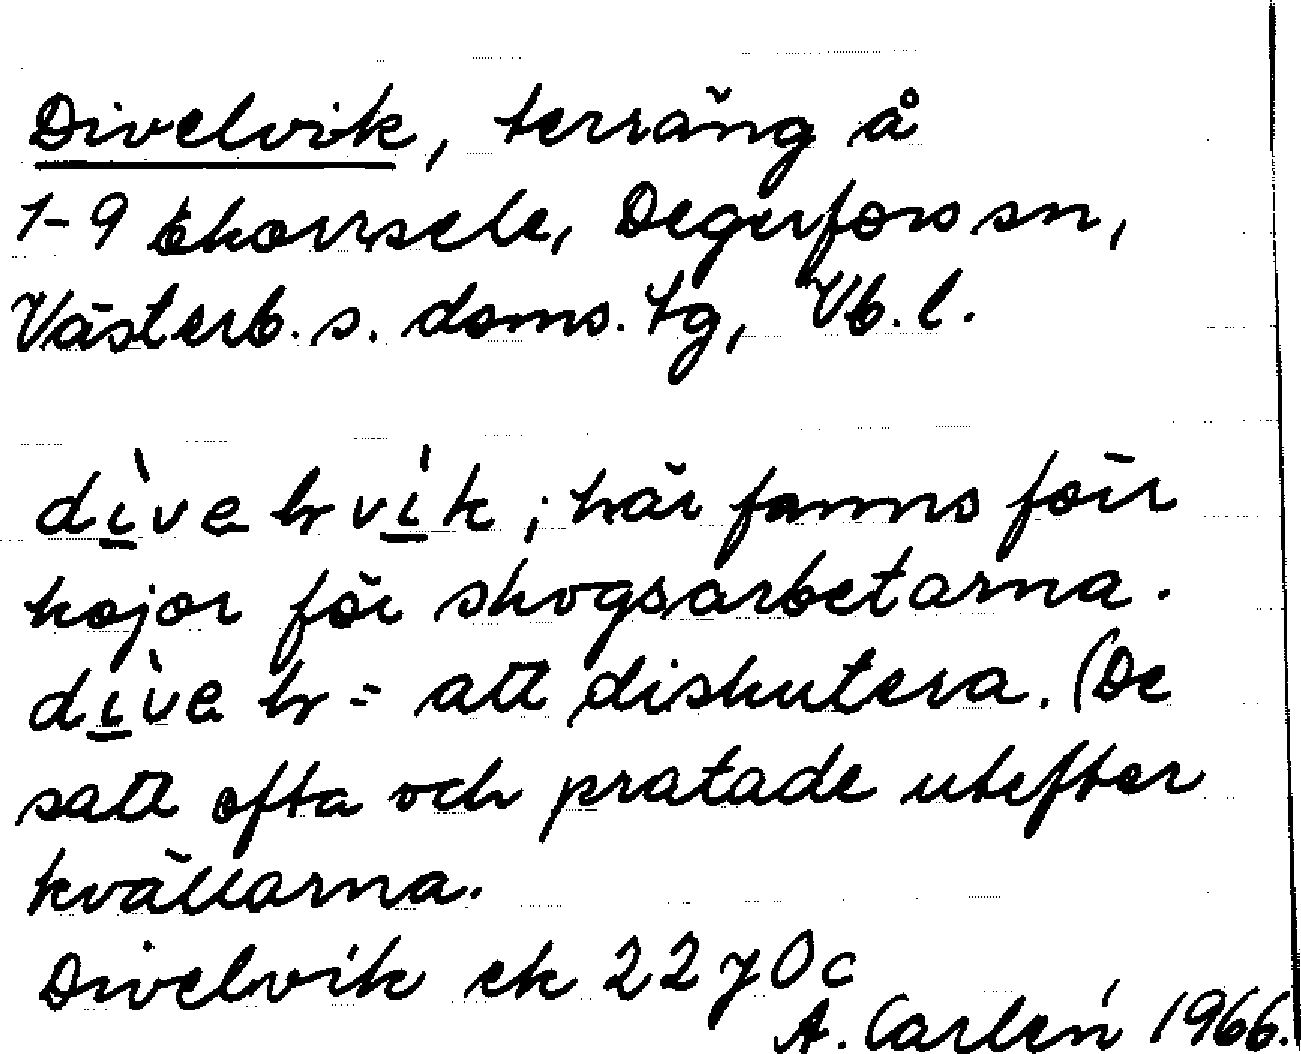 Divelvik, terräng å
1-9 Ekorrsele, Degerfors sn,
Västerb. s. doms. tg, Vb. l.
dìvelvìk; här fanns förr
kojor för skogsarbetarna.
dìvel = att diskutera. (De
satt ofta och pratade utefter
kvällarna.
Divelvik ek 22 7 0 c
A. Carlén 1966.